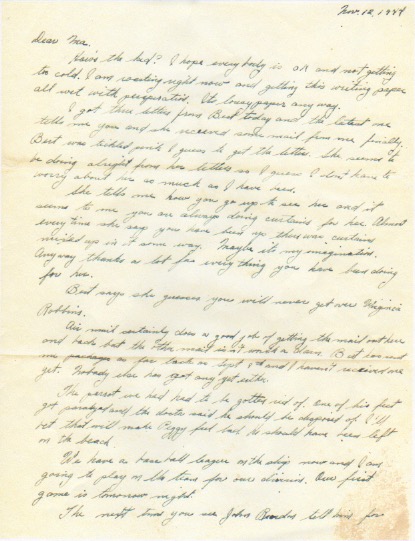 Nov. 12, 1944
Dear Ma,
How's the kid? I hope everybody is OK and not getting
too cold. I am roasting right now and getting this writing paper
all wet with perspiration. Its lousey paper any way.
I got three letters from Bert today and the latest one
tells me you and she received some mail from me finally.
Bert was tickled pink I guess to get the letters. She seems to
be doing alright from her letters so I guess I don't have to
worry about her as much as I have been.
She tells me how you go up to see her and it
seems to me you are always doing curtains for her. Almost
every time she says you have been up there was curtains
mixed up in it some way. Maybe its my imagination.
Anyway thanks a lot for every thing you have been doing
for her.
Bert says she guesses you will never get over Virginia
Robbins.
Air mail certainly does a good job of getting the mail out here
and back but the other mail isn't worth a damn. Bert has sent
me packages as far back as Sept and I haven't received one
yet. Nobody else has got any yet either.
The parrot we had had to be gotten rid of. One of his feet
got paralyzed and the doctor said he should be disposed of. I'll
bet that will make Peggy feel bad. He should have been left
on the beach.
We have a base ball league on the ship now and I am
going to play on the team for our division. Our first
game is tomorrow night.
The next time you see John tell him for